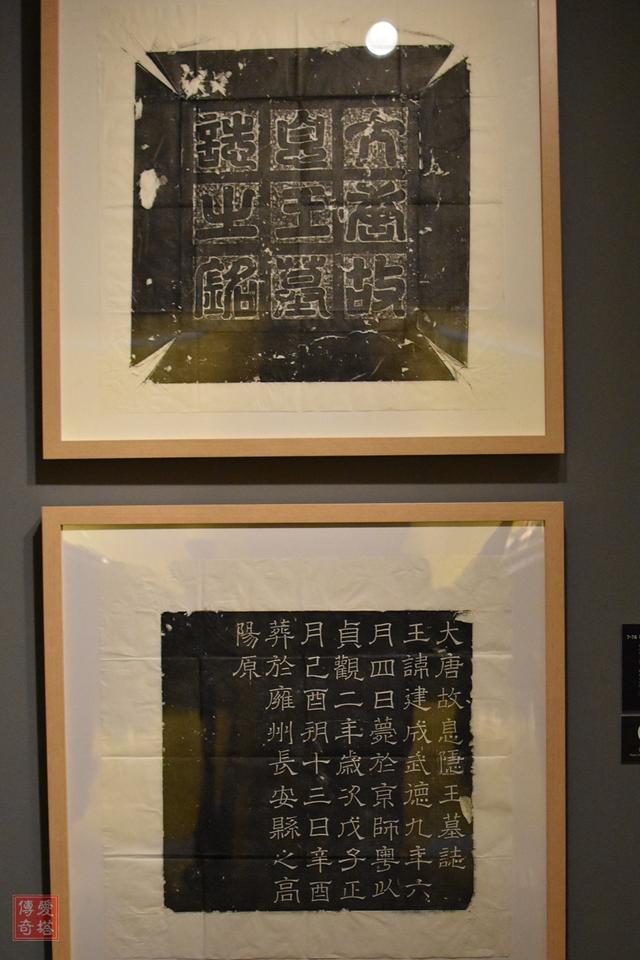 大唐故
息王墓
誌之銘
大唐故息隱王墓誌
王諱建成武德九年六
月四日薨於京師粵以
貞觀二年歲次戊子正
月己酉朔十三日辛酉
葬於雍州長安縣之高
陽原
愛塔
傳奇